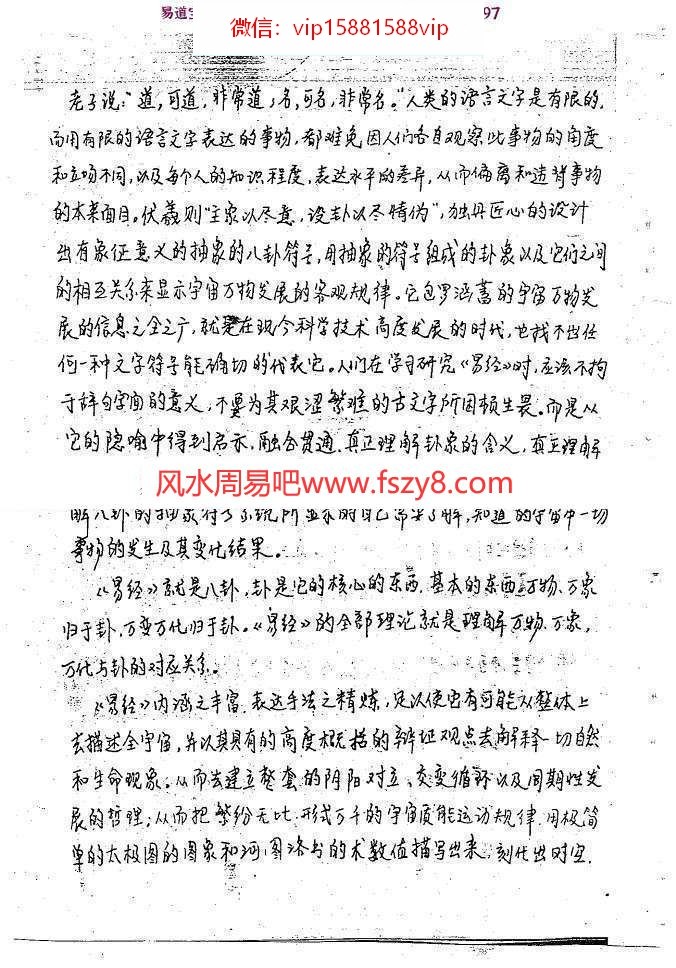 易道宝
微信：vip15881588vip
97
老子说："道,可道,非常道,名,可名,非常名。"人类的语言文字是有限的,
而用有限的语言文字表达的事物,都难免因人们各自观察此事物的角度
和立场不同,以及每个人的知识程度,表达水平的差异,从而偏离和违背事物
的本来面目。伏羲则"立象以尽意,设卦以尽情伪",独具匠心的设计
出有象征意义的抽象的八卦符号,用抽象的符号组成的卦象以及它们之间
的相互关系来显示宇宙万物发展的客观规律。它包罗涵蓄的宇宙万物发
展的信息之全之广,就是在现今科学技术高度发展的时代,也找不出任
何一种文字符号能确切的代表它。人们在学习研究《易经》时,应该不拘
于辞句字面的意义,不要为其艰涩繁难的古文字所困顿生畏。而是从
它的隐喻中得到启示,融会贯通,真正理解卦象的含义,真正理解
风水周易吧www.fszy8.com
解八卦的抽象符号系统所显示的自己需要了解,知道的宇宙中一切
事物的发生及其变化结果。
《易经》就是八卦,卦是它的核心的东西,基本的东西,万物、万象
归于卦,万变万化归于卦。《易经》的全部理论就是理解万物、万象,
万化与卦的对应关系。
《易经》内涵之丰富,表达手法之精炼,足以使它有可能从整体上
去描述全宇宙,并以其具有的高度概括的辩证观点去解释一切自然
和生命现象。从而去建立整套的阴阳对立、交变循环以及周期性发
展的哲理;从而把繁纷无比,形式万千的宇宙质能运动规律,用极简
单的太极图的图象和河图洛书的术数值描写出来,刻化出时空